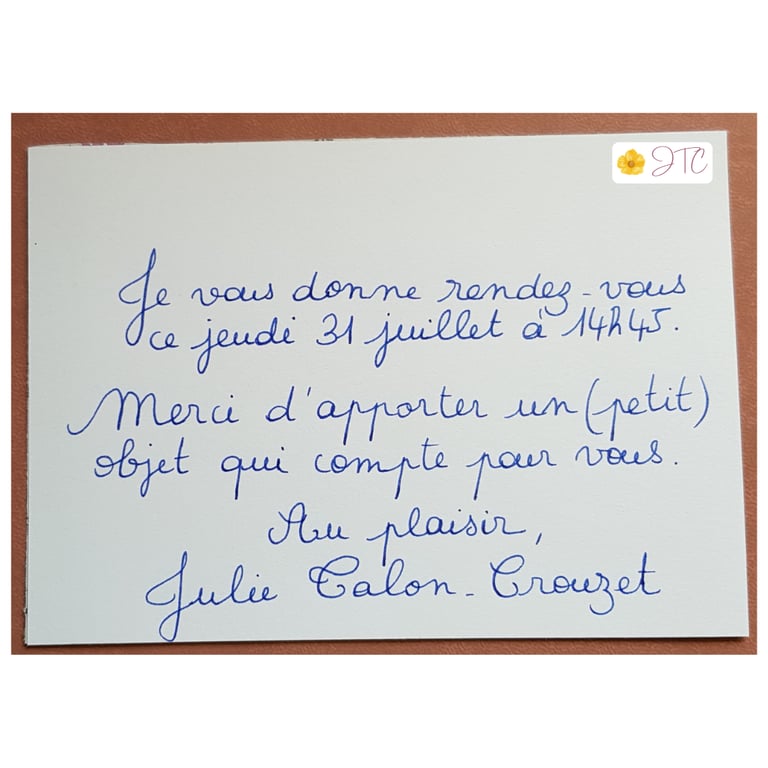 JTC
Je vous donne rendez-vous
ce jeudi 31 juillet à 14h45.
Merci d'apporter un (petit)
objet qui compte pour vous.
Au plaisir,
Julie Talon-Crouzet